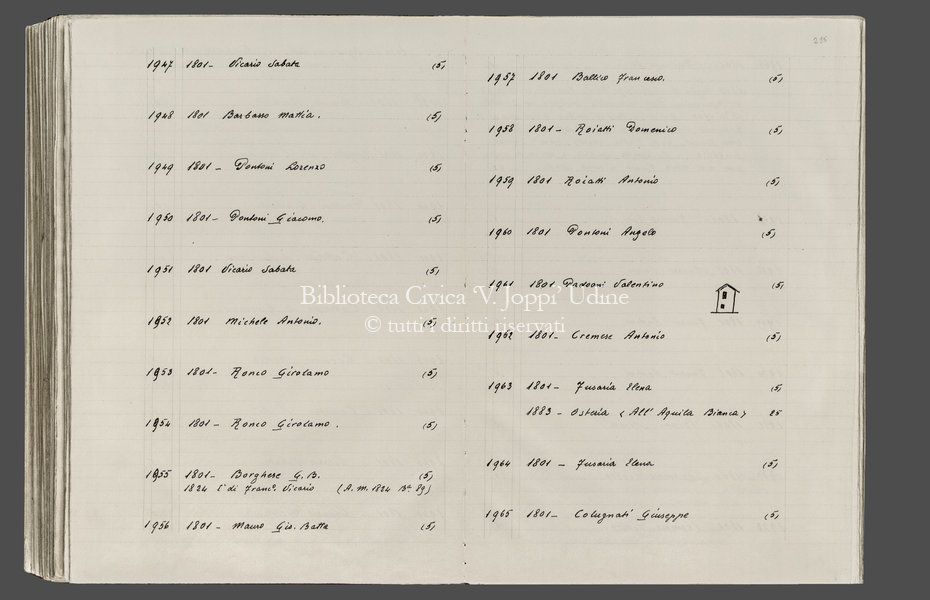 256
1947 1801- Vicario Sabata (5)
1948 1801 Barbasso Mattia. (5)
1949 1801 - Dontoni Lorenzo (5)
1950 1801- Dontoni Giacomo. (5)
1951 1801 Vicario Sabata (5)
1952 1801 Michele Antonio. (5)
1953 1801- Ronco Girolamo (5)
1954 1801- Ronco Girolamo. (5)
1955 1801- Borghese G. B. (5)
1824 è di Franc.º Vicario (A. m. 1824 Bª 89)
1956 1801- Mauro Gio. Batta (5)
1957 1801 Ballico Francesco. (5)
1958 1801- Roiatti Domenico (5)
1959 1801 Roiatti Antonio (5)
1960 1801 Dontoni Angelo (5)
1961 1801 Valentino (5)
1962 1801- Cremese Antonio (5)
1963 1801- Fusaria Elena (5)
1883 - Osteria (All' Aquila Bianca) 25
1964 1801 - Fusaria Elena (5)
1965 1801- Colugnati Giuseppe (5)
Biblioteca Civica 'V. Joppi' Udine
© tutti i diritti riservati